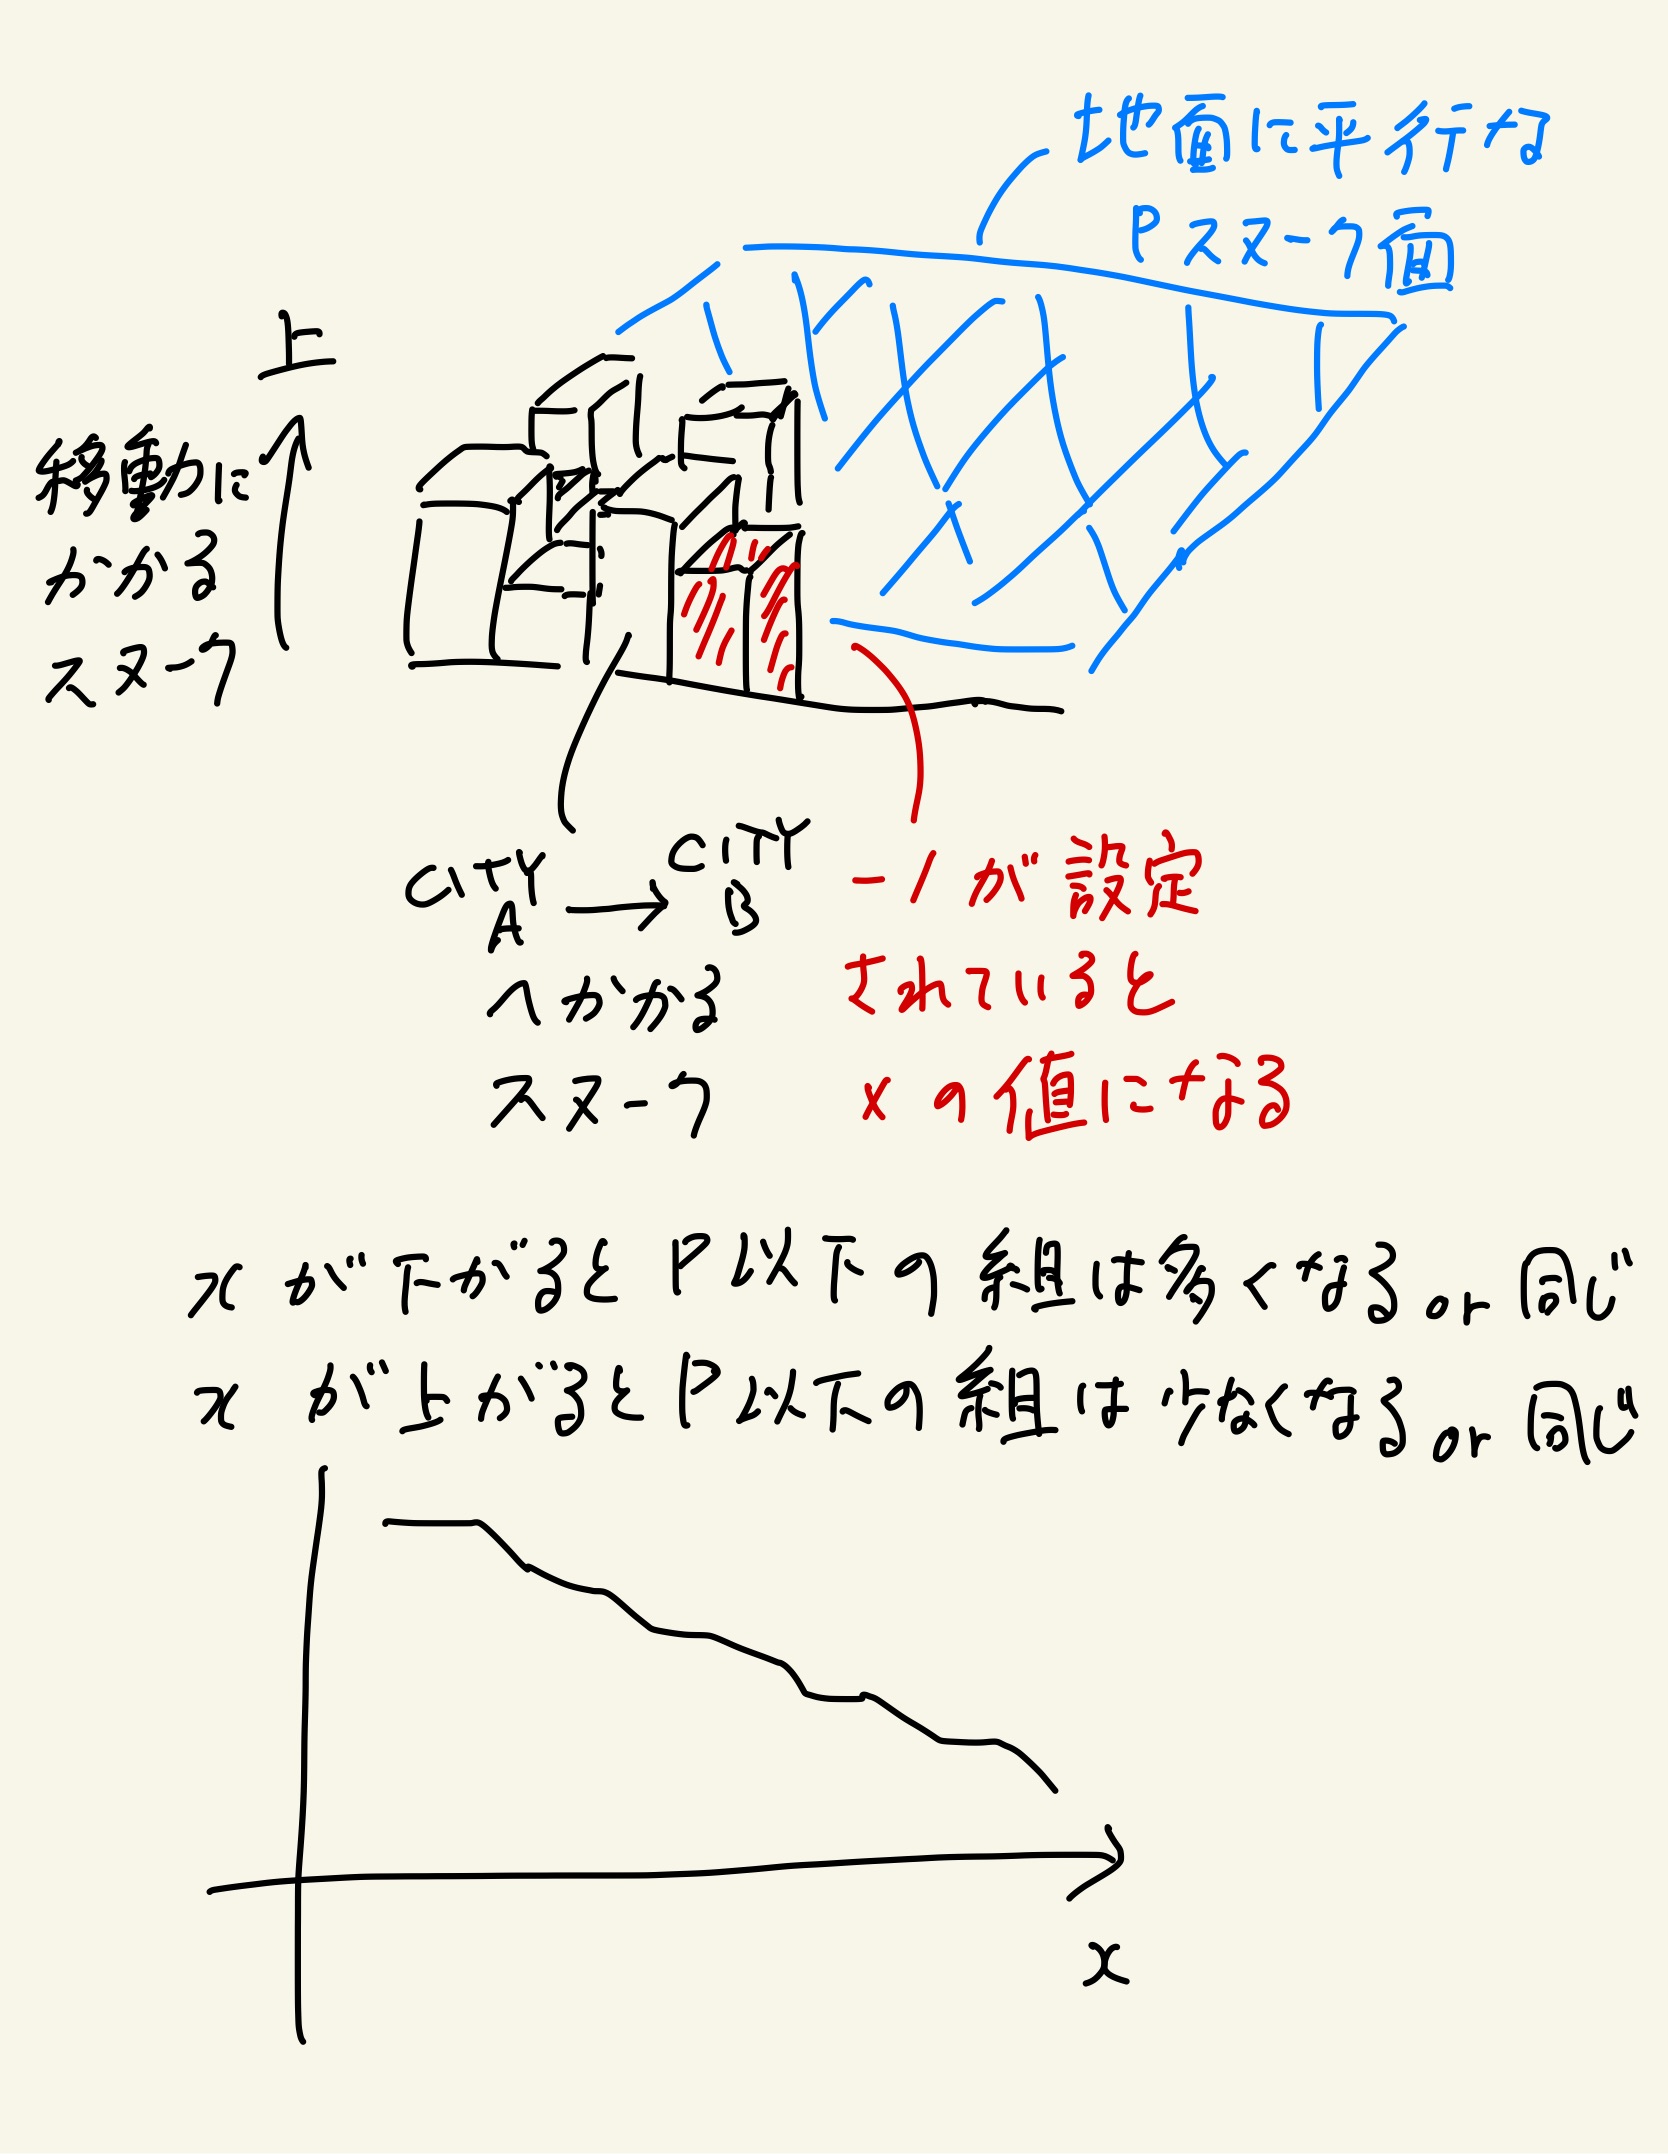 地面に平行な
Pスヌーク面
上
移動に
かかる
スヌーク
CITY A → CITY B
へかかる
スヌーク
-1が設定
されていると
xの値になる
xが下がるとP以下の組は多くなるor同じ
xが上がるとP以下の組は少なくなるor同じ
x